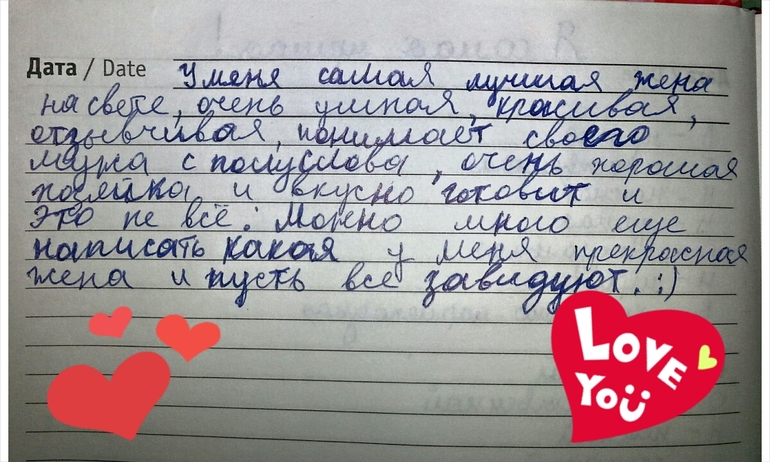 Дата / Date У меня самая лучшая жена
на свете, очень умная, красивая,
отзывчивая, понимает своего
мужа с полуслова, очень хорошая
хозяйка и вкусно готовит и
это не всё. Можно много еще
написать какая у меня прекрасная
жена и пусть все завидуют. :)
LOVE
YOU